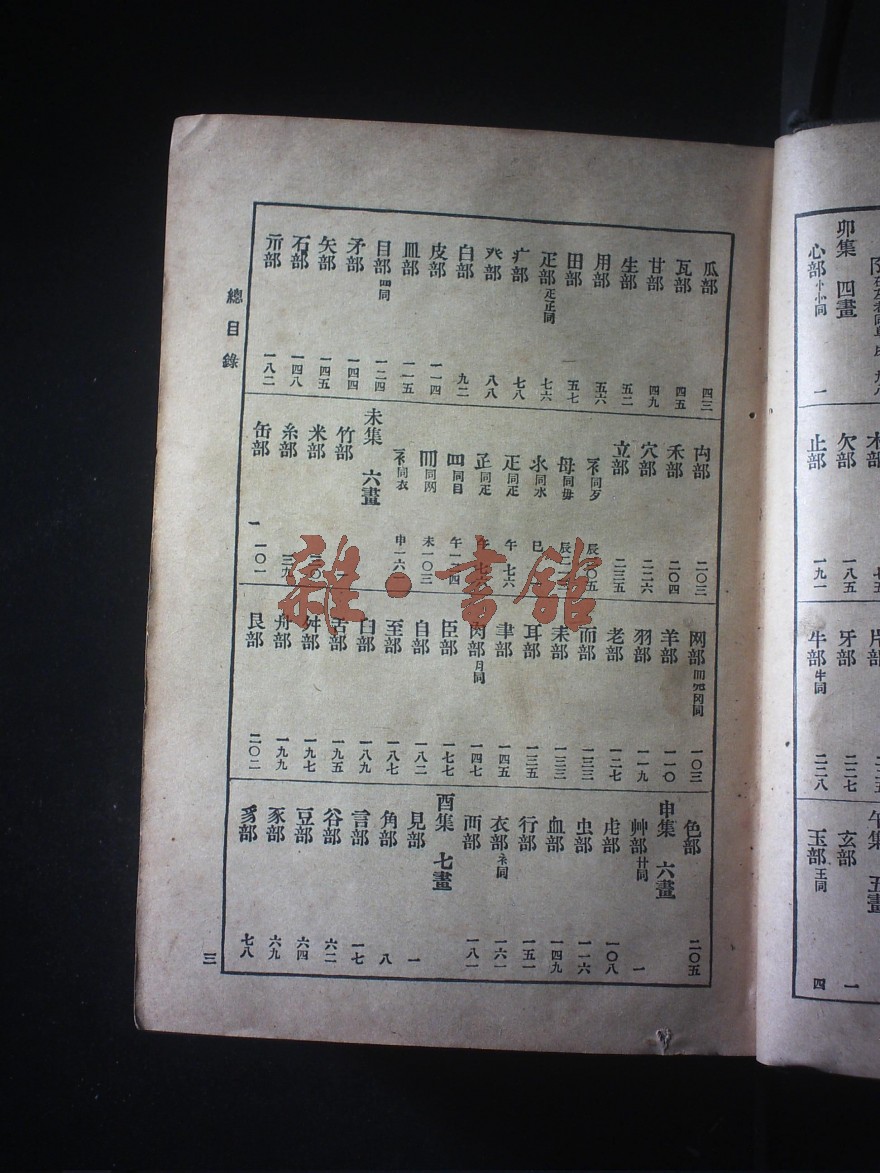 瓜部 四三
瓦部 四五
甘部 四九
生部 五二
用部 五六
田部 五七
疋部 𤴔正同 七六
疒部 七八
癶部 八八
白部 九二
皮部 一一四
皿部 一一五
目部 罒同 一二四
矛部 一四四
矢部 一四五
石部 一四八
示部 一八二
禸部 二〇三
禾部 二〇四
穴部 二二六
立部 二三五
同歹 辰二〇五
母同毋
氺同水 巳
同疋 午 七六
同疋 午 七六
罒同目 午一二四
同网 未一〇三
同衣 申一六
未集 六畫
竹部 一
米部 三〇
糸部 三九
缶部 一〇一
网部 同 一〇三
羊部 一一〇
羽部 一一九
老部 一二七
而部 一三三
耒部 一三三
耳部 一三五
聿部 一四五
肉部 月同 一四七
臣部 一七七
自部 一八二
至部 一八七
臼部 一八九
舌部 一九五
舛部 一九七
舟部 一九九
艮部 二〇二
色部 二〇五
申集 六畫
艸部 艹同 一
虍部 一〇八
虫部 一一六
血部 一四九
行部 一五一
衣部 衤同 一六一
襾部 一八一
酉集 七畫
見部 一
角部 八
言部 一七
谷部 六二
豆部 六四
豕部 六九
豸部 七八
總目錄
三
卯集 四畫
心部 忄㣺同 一
欠部 一八五
止部 一九一
片部
牙部 二二七
牛部 牜同 二二八
午集 五畫
玄部 一
玉部 王同 四
雜·書館